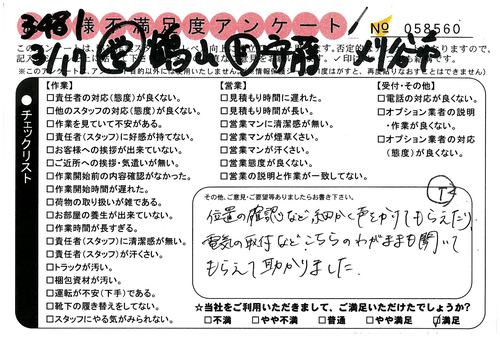 様不満足度アンケート
No 058560
3481
3/17 鶴山 斎藤 刈谷市
チェックリスト
【作業】
□責任者の対応(態度)が良くない。
□他のスタッフの対応(態度)が良くない。
□作業を見ていて不安がある。
□責任者(スタッフ)に好感が持てない。
□お客様への挨拶が出来ていない。
□ご近所への挨拶・気遣いが無い。
□作業開始前の内容確認がなかった。
□作業開始時間が遅れた。
□荷物の取り扱いが雑である。
□お部屋の養生が出来ていない。
□作業時間が長すぎる。
□責任者(スタッフ)に清潔感が無い。
□責任者(スタッフ)が汗くさい。
□トラックが汚い。
□梱包資材が汚い。
□運転が不安(下手)である。
□靴下の履き替えをしてない。
□スタッフにやる気がみられない。
【営業】
□見積もり時間に遅れた。
□見積もり時間が長い。
□営業マンに清潔感が無い。
□営業マンが煙草くさい。
□営業マンが汗くさい。
□営業態度が良くない。
□営業の説明と作業が一致してない。
【受付・その他】
□電話の対応が良くない。
□オプション業者の説明
・作業が良くない。
□オプション業者の対応
(態度)が良くない。
その他、ご意見・ご要望等ありましたらお書き下さい。
位置の確認など、細かく声をかけてもらえたり
電気の取付などこちらのわがままも聞いて
もらえて助かりました。
☆当社をご利用いただきまして、ご満足いただけたでしょうか?
□不満 □やや不満 □普通 □やや満足 ☑満足